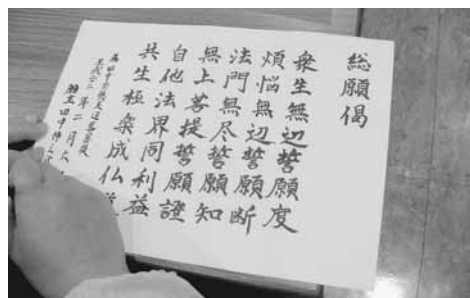 総願偈
衆生無辺誓願度
煩悩無辺誓願断
法門無尽誓願知
無上菩提誓願證
自他法界同利益
共生極楽成仏道
為田中
年二月六
願主田中